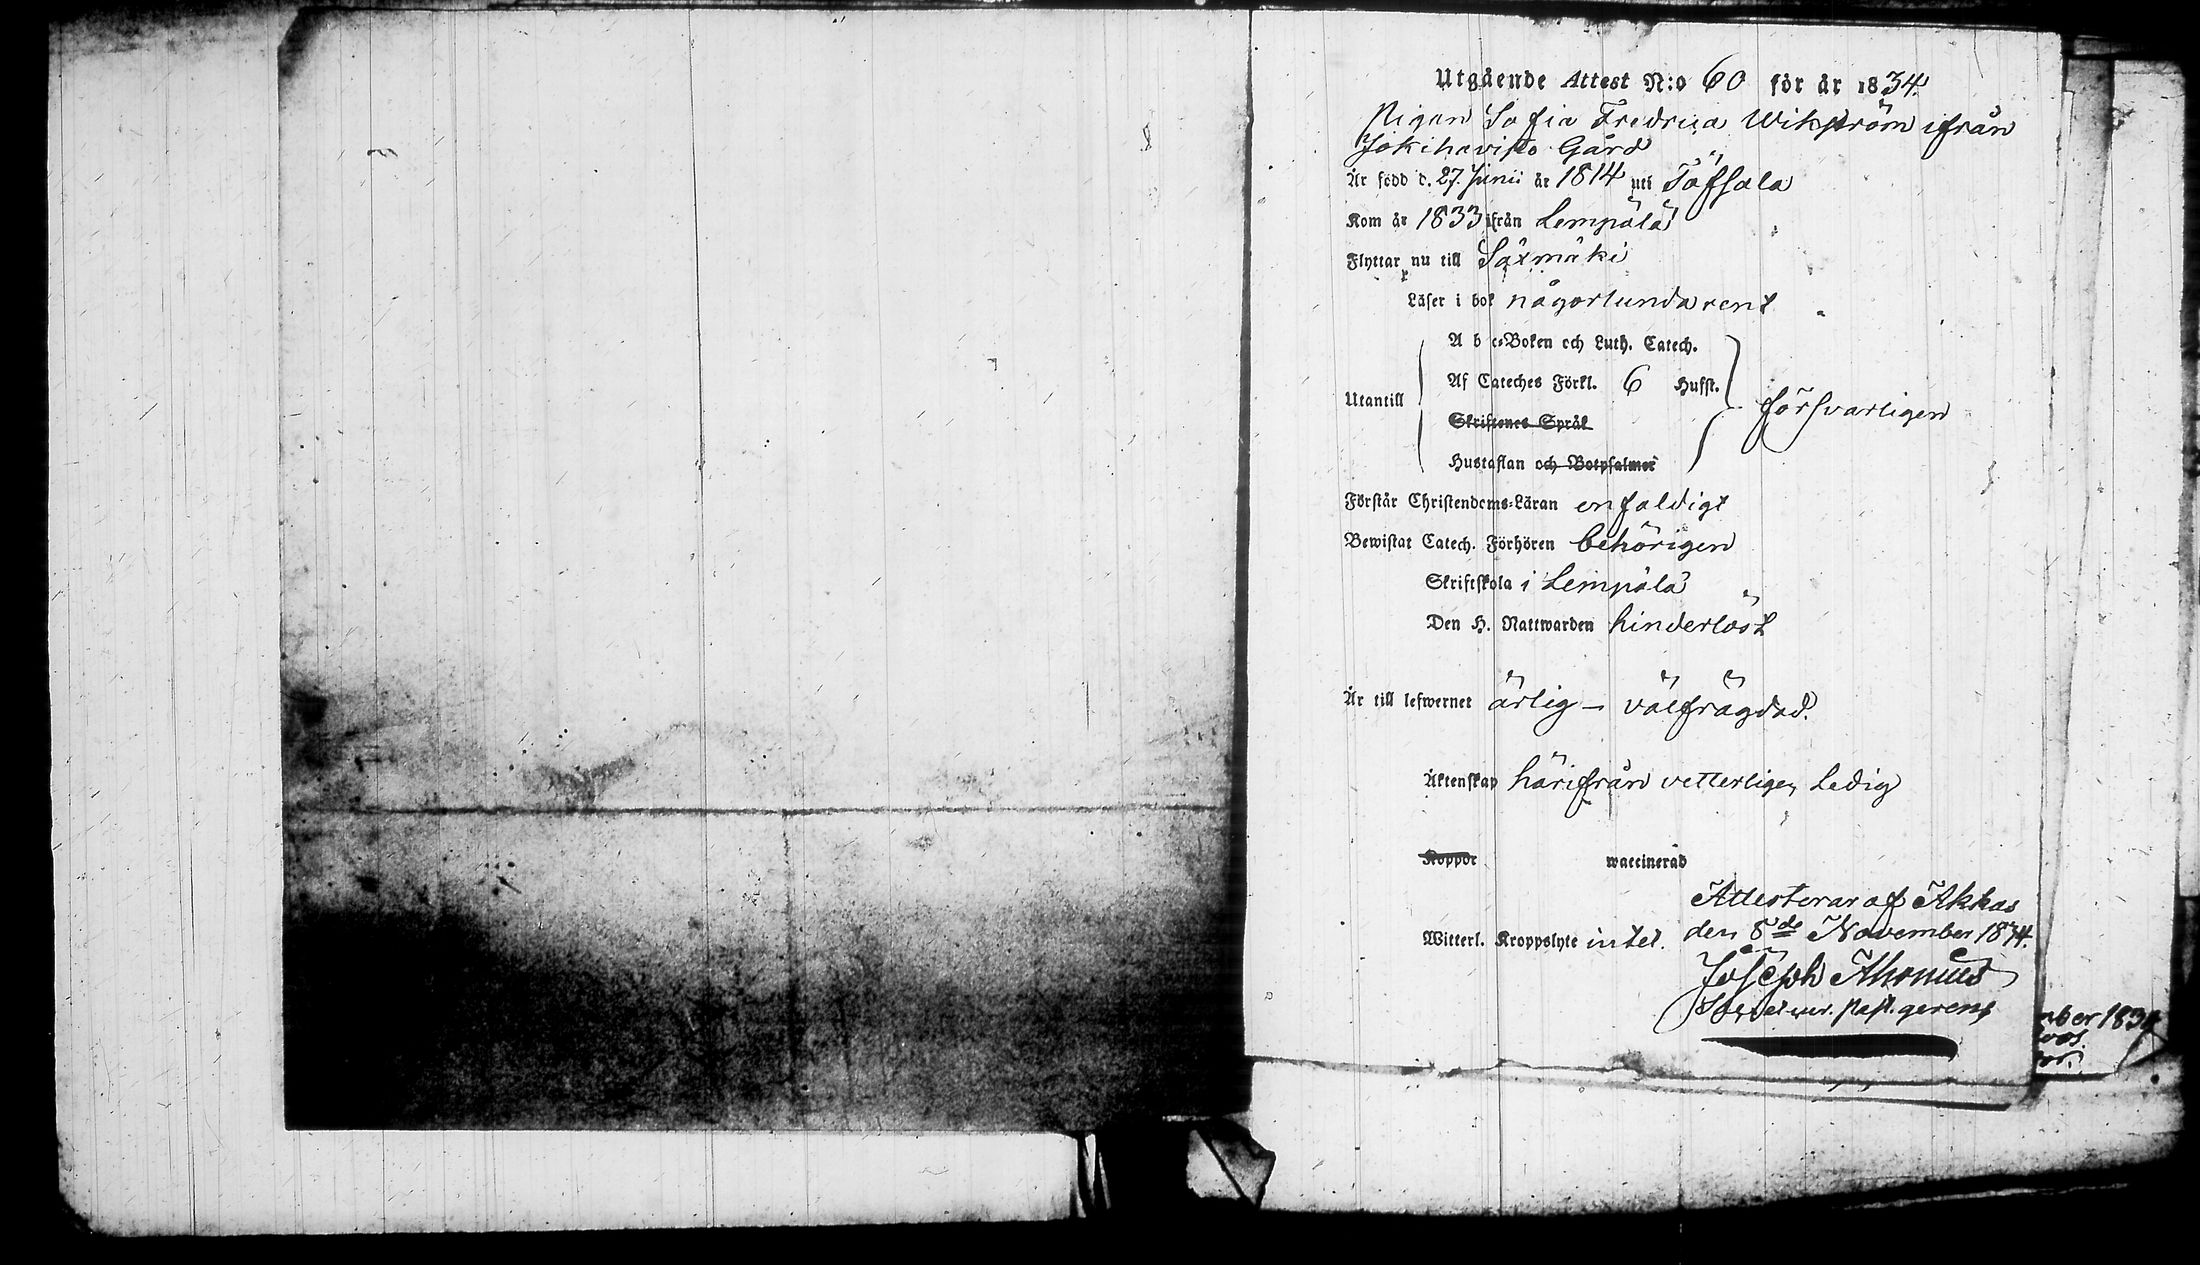 Utgående Attest N:o 60 för år 1834.
Pigan Sofia Fredrica Wikström ifrån
Jokihavisto Gård
Är född d. 27. Junii år 1814 uti Töfsala
Kom år 1833 ifrån Lempälä
Flyttar nu till Säxmäki
Läser i bok någorlunda rent
A b c-Boken och Luth. Catech.
Af Cateches Förkl. 6 Hufst.
Utantill
försvarligen
Skriftenes Språk
Hustaflan och Botpsalmer
Förstår Christendoms-Läran enfaldigt
Bewistat Catech. Förhören behörigen
Skriftskola i Lempälä
Den H. Nattwarden hinderlöst
Är till lefwernet ärlig - välfrägdad.
Äktenskap härifrån vetterligen Ledig
Koppor waccinerad
Attesterar af Akkas
Witterl. Kroppslyte intet. den 8de November 1834.
Joseph
Past. gerens
mber 1834